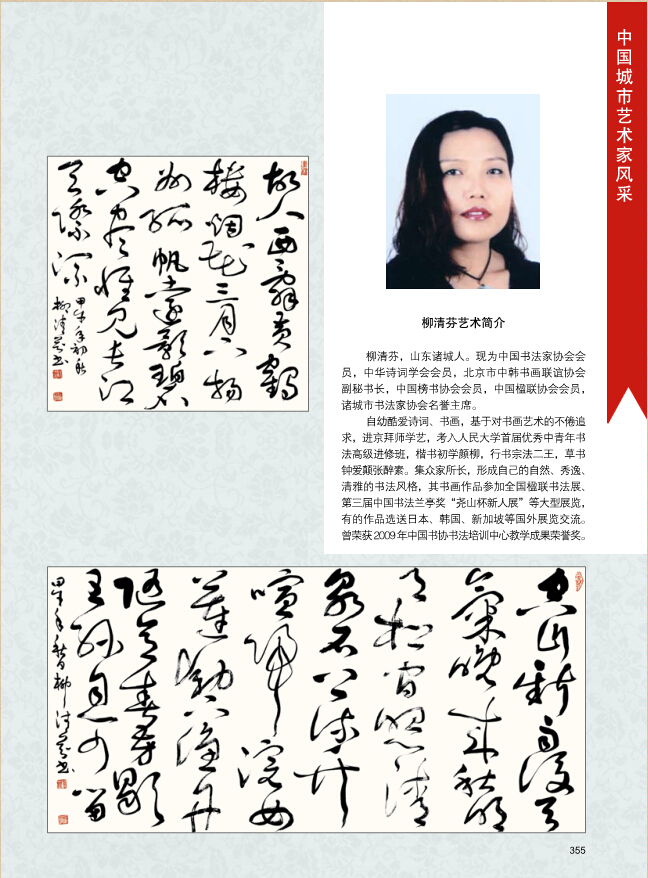 中国城市艺术家风采
故人西辞黄鹤
楼烟花三月下扬
州孤帆远影碧
空尽惟见长江
天际流
甲午年初秋
柳清芬书
柳清芬艺术简介
柳清芬,山东诸城人。现为中国书法家协会会
员,中华诗词学会会员,北京市中韩书画联谊协会
副秘书长,中国榜书协会会员,中国楹联协会会员,
诸城市书法家协会名誉主席。
自幼酷爱诗词、书画,基于对书画艺术的不倦追
求,进京拜师学艺,考入人民大学首届优秀中青年书
法高级进修班,楷书初学颜柳,行书宗法二王,草书
钟爱颠张醉素。集众家所长,形成自己的自然、秀逸、
清雅的书法风格,其书画作品参加全国楹联书法展、
第三届中国书法兰亭奖“尧山杯新人展”等大型展览,
有的作品选送日本、韩国、新加坡等国外展览交流。
曾荣获2009年中国书协书法培训中心教学成果荣誉奖。
空山新雨后天
气晚来秋明
月松间照清
泉石上流竹
喧归浣女
莲动下渔舟
随意春芳歇
王孙自可留
甲午年秋日柳清芬书
355